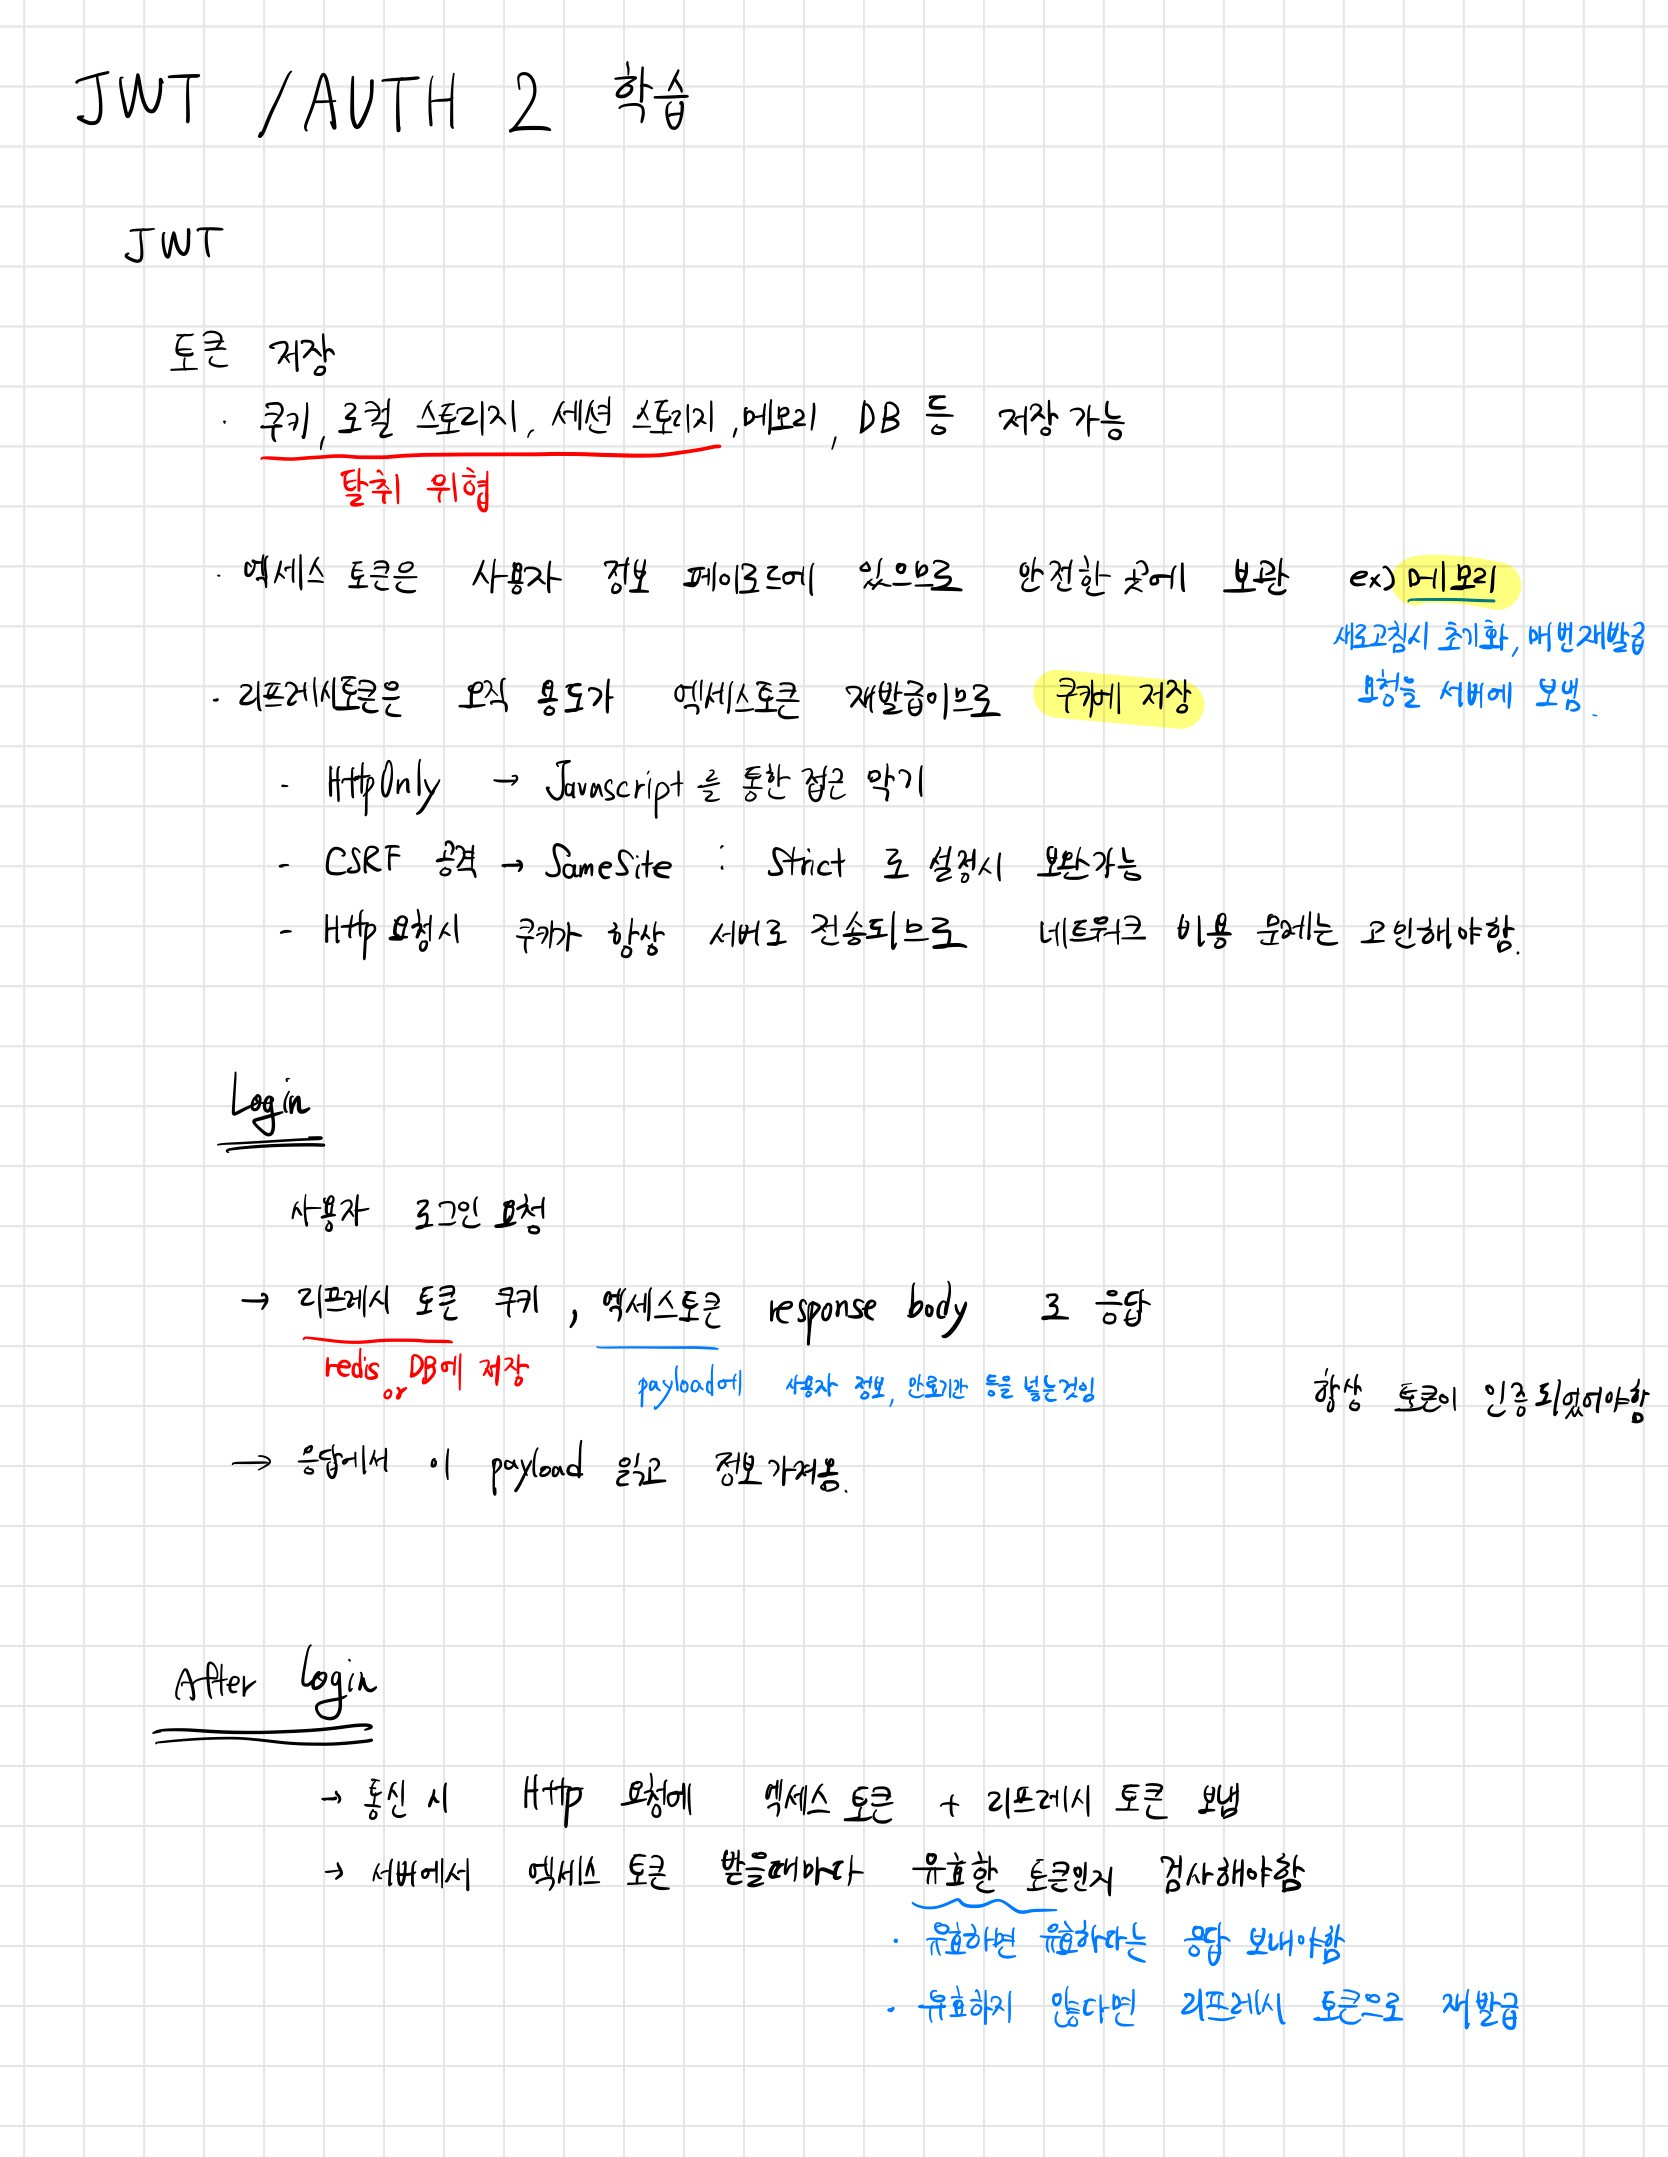 JWT /AUTH 2 학습
JWT
토큰 저장
· 쿠키, 로컬 스토리지, 세션 스토리지, 메모리, DB 등 저장 가능
탈취 위협
· 엑세스 토큰은 사용자 정보 페이로드에 있으므로 안전한 곳에 보관 ex) 메모리
새로고침시 초기화, 매번재발급
요청을 서버에 보냄.
· 리프레시토큰은 오직 용도가 엑세스토큰 재발급이므로 쿠키에 저장
- HttpOnly → Javascript를 통한 접근 막기
- CSRF 공격 → SameSite : Strict 로 설정시 보완가능
- Http 요청시 쿠키가 항상 서버로 전송되므로 네트워크 비용 문제는 고민해야함.
Login
사용자 로그인 요청
→ 리프레시 토큰 쿠키, 엑세스토큰 response body 로 응답
redis or DB에 저장
payload에 사용자 정보, 만료기간 등을 넣는것임
항상 토큰이 인증되었어야함
→ 응답에서 이 payload 읽고 정보가져옴.
After login
→ 통신 시 Http 요청에 엑세스 토큰 + 리프레시 토큰 보냄
→ 서버에서 엑세스 토큰 받을때마다 유효한 토큰인지 검사해야함
· 유효하면 유효하다는 응답 보내야함
· 유효하지 않다면 리프레시 토큰으로 재발급